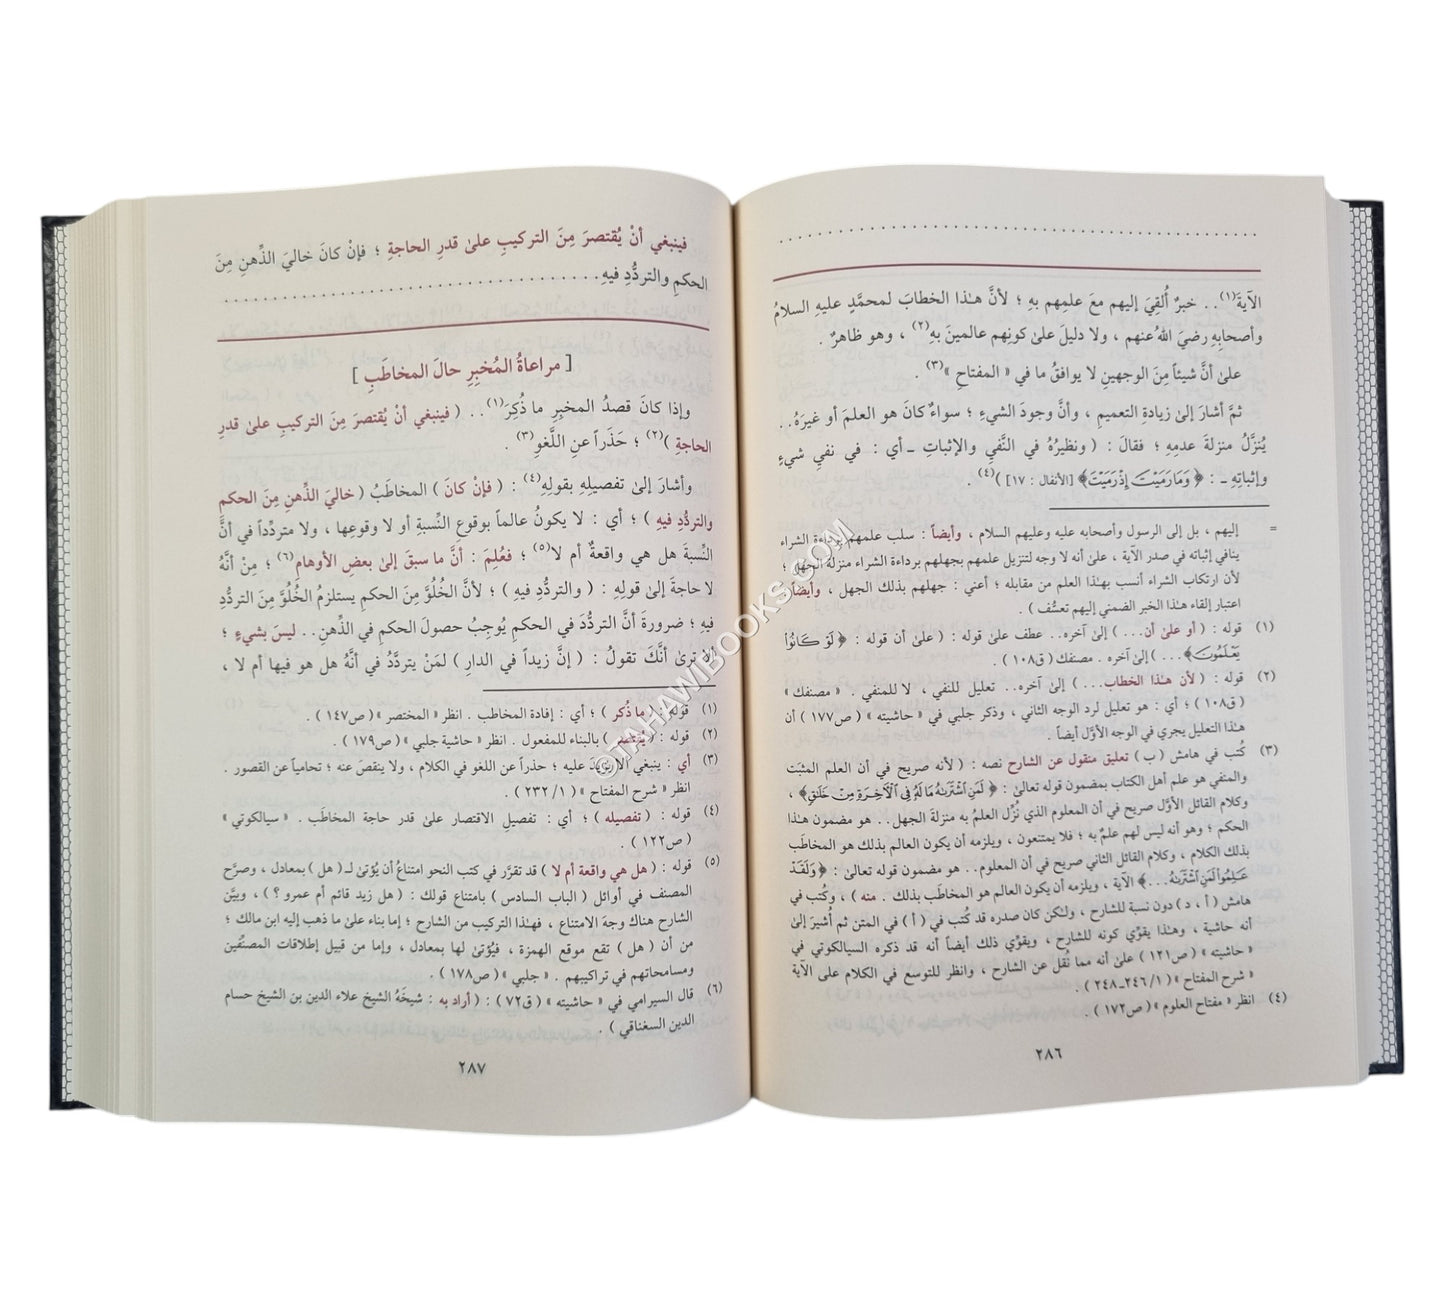 الآيةَ(١).. خبرٌ أُلقِيَ إليهم معَ علمِهم بهِ ؛ لأنَّ هـٰذا الخطابَ لمحمَّدٍ عليهِ السلامُ
وأصحابِهِ رضيَ اللهُ عنهم ، ولا دليلَ علىٰ كونِهم عالمينَ بهِ(٢) ، وهو ظاهرٌ .
علىٰ أنَّ شيئاً مِنَ الوجهينِ لا يوافقُ ما في « المفتاحِ »(٣) .
ثمَّ أشارَ إلىٰ زيادةِ التعميمِ ، وأنَّ وجودَ الشيءِ ؛ سواءٌ كانَ هو العلمَ أو غيرَهُ..
يُنزَّلُ منزلةَ عدمِهِ ؛ فقالَ : ( ونظيرُهُ في النَّفيِ والإثباتِ ـ أي : في نفيِ شيءٍ
وإثباتِهِ ـ : ﴿ وَمَا رَمَيْتَ إِذْ رَمَيْتَ ﴾ [الأنفال : ١٧] )(٤) .
= إليهم ، بل إلى الرسول وأصحابه عليه وعليهم السلام ، وأيضاً : سلب علمهم برداءة الشراء
ينافي إثباته في صدر الآية ، علىٰ أنه لا وجه لتنزيل علمهم بجهلهم برداءة الشراء منزلة الجهل ؛
لأن ارتكاب الشراء أنسب بهـٰذا العلم من مقابله ؛ أعني : جهلهم بذلك الجهل ، وأيضاً :
اعتبار إلقاء هـٰذا الخبر الضمني إليهم تعسُّف ) .
(١) قوله : ( أو علىٰ أن... ) إلىٰ آخره.. عطف علىٰ قوله : ( علىٰ أن قوله : ﴿ لَوْ كَانُوا
يَعْلَمُونَ ﴾... ) إلىٰ آخره . مصنفك ( ق١٠٨ ) .
(٢) قوله : ( لأن هـٰذا الخطاب... ) إلىٰ آخره.. تعليل للنفي ، لا للمنفي . « مصنفك »
( ق١٠٨ ) ؛ أي : هو تعليل لرد الوجه الثاني ، وذكر جلبي في « حاشيته » ( ص١٧٧ ) أن
هـٰذا التعليل يجري في الوجه الأوَّل أيضاً .
(٣) كُتب في هامش ( ب ) تعليق منقول عن الشارح نصه : ( لأنه صريح في أن العلم المثبَت
والمنفي هو علم أهل الكتاب بمضمون قوله تعالىٰ : ﴿ لَمَنِ اشْتَرَاهُ مَا لَهُ فِي الْآخِرَةِ مِنْ خَلَاقٍ ﴾ ،
وكلام القائل الأوَّل صريح في أن المعلوم الذي نُزِّل العلمُ به منزلةَ الجهل.. هو مضمون هـٰذا
الحكم ؛ وهو أنه ليس لهم علمٌ به ؛ فلا يمتنعون ، ويلزمه أن يكون العالم بذلك هو المخاطَب
بذلك الكلام ، وكلام القائل الثاني صريح في أن المعلوم.. هو مضمون قوله تعالىٰ : ﴿ وَلَقَدْ
عَلِمُوا لَمَنِ اشْتَرَاهُ... ﴾ الآية ، ويلزمه أن يكون العالم هو المخاطَب بذلك . منه ) ، وكُتب في
هامش ( أ ، د ) دون نسبة للشارح ، ولـٰكن كان صدره قد كُتب في ( أ ) في المتن ثم أُشيرَ إلىٰ
أنه حاشية ، وهـٰذا يقوِّي كونه للشارح ، ويقوِّي ذلك أيضاً أنه قد ذكره السيالكوتي في
« حاشيته » ( ص١٢١ ) علىٰ أنه مما نُقل عن الشارح ، وانظر للتوسع في الكلام على الآية
« شرح المفتاح » ( ١/ ٢٤٦ـ٢٤٨ ) .
(٤) انظر « مفتاح العلوم » ( ص١٧٢ ) .
٢٨٦
فينبغي أنْ يُقتصرَ مِنَ التركيبِ علىٰ قدرِ الحاجةِ ؛ فإنْ كانَ خاليَ الذِّهنِ مِنَ
الحكمِ والتردُّدِ فيهِ
[ مراعاةُ المُخبِرِ حالَ المخاطَبِ ]
وإذا كانَ قصدُ المخبرِ ما ذُكرَ(١).. ( فينبغي أنْ يُقتصرَ مِنَ التركيبِ علىٰ قدرِ
الحاجةِ )(٢) ؛ حَذَراً عنِ اللَّغوِ(٣) .
وأشارَ إلىٰ تفصيلِهِ بقولِهِ(٤) : ( فإنْ كانَ ) المخاطَبُ ( خاليَ الذِّهنِ مِنَ الحكمِ
والتردُّدِ فيهِ ) ؛ أي : لا يكونُ عالماً بوقوعِ النِّسبةِ أو لا وقوعِها ، ولا متردِّداً في أنَّ
النِّسبةَ هل هي واقعةٌ أم لا(٥) ؛ فعُلِمَ : أنَّ ما سبقَ إلىٰ بعضِ الأوهامِ(٦) ؛ مِنْ أنَّهُ
لا حاجةَ إلىٰ قولِهِ : ( والتردُّدِ فيهِ ) ؛ لأنَّ الخُلُوَّ مِنَ الحكمِ يستلزمُ الخُلُوَّ مِنَ التردُّدِ
فيهِ ؛ ضرورةَ أنَّ التردُّدَ في الحكمِ يُوجِبُ حصولَ الحكمِ في الذِّهنِ.. ليسَ بشيءٍ ؛
ألا ترىٰ أنَّكَ تقولُ : ( إنَّ زيداً في الدارِ ) لمَنْ يتردَّدُ في أنَّهُ هل هو فيها أم لا ،
(١) قوله : ( ما ذُكر ) ؛ أي : إفادة المخاطب . انظر « المختصر » ( ص١٤٧ ) .
(٢) قوله : ( يُقتصر ) بالبناء للمفعول . انظر « حاشية جلبي » ( ص١٧٩ ) .
(٣) أي : ينبغي ألا يزيدَ عليه ؛ حذراً عن اللغو في الكلام ، ولا ينقصَ عنه ؛ تحامياً عن القصور .
انظر « شرح المفتاح » ( ١/ ٢٣٢ ) .
(٤) قوله : ( تفصيله ) ؛ أي : تفصيلِ الاقتصار علىٰ قدر حاجة المخاطَب . « سيالكوتي »
( ص١٢٢ ) .
(٥) قوله : ( هل هي واقعة أم لا ) قد تقرَّر في كتب النحو امتناعُ أن يُؤتىٰ لـ( هل ) بمعادل ، وصرَّح
المصنف في أوائل ( الباب السادس ) بامتناع قولك : ( هل زيد قائم أم عمرو ؟ ) ، وبيَّن
الشارح هناك وجهَ الامتناع ، فهـٰذا التركيب من الشارح ؛ إما بناء علىٰ ما ذهب إليه ابن مالك ؛
من أن ( هل ) تقع موقع الهمزة ، فيُؤتىٰ لها بمعادل ، وإما من قبيل إطلاقات المصنِّفين
ومسامحاتهم في تراكيبهم . « جلبي » ( ص١٧٨ ) .
(٦) قال السيرامي في « حاشيته » ( ق٧٢ ) : ( أراد به : شيخَهُ الشيخ علاء الدين بن الشيخ حسام
الدين السغناقي ) .
٢٨٧
©TAHAWIBOOKS.COM